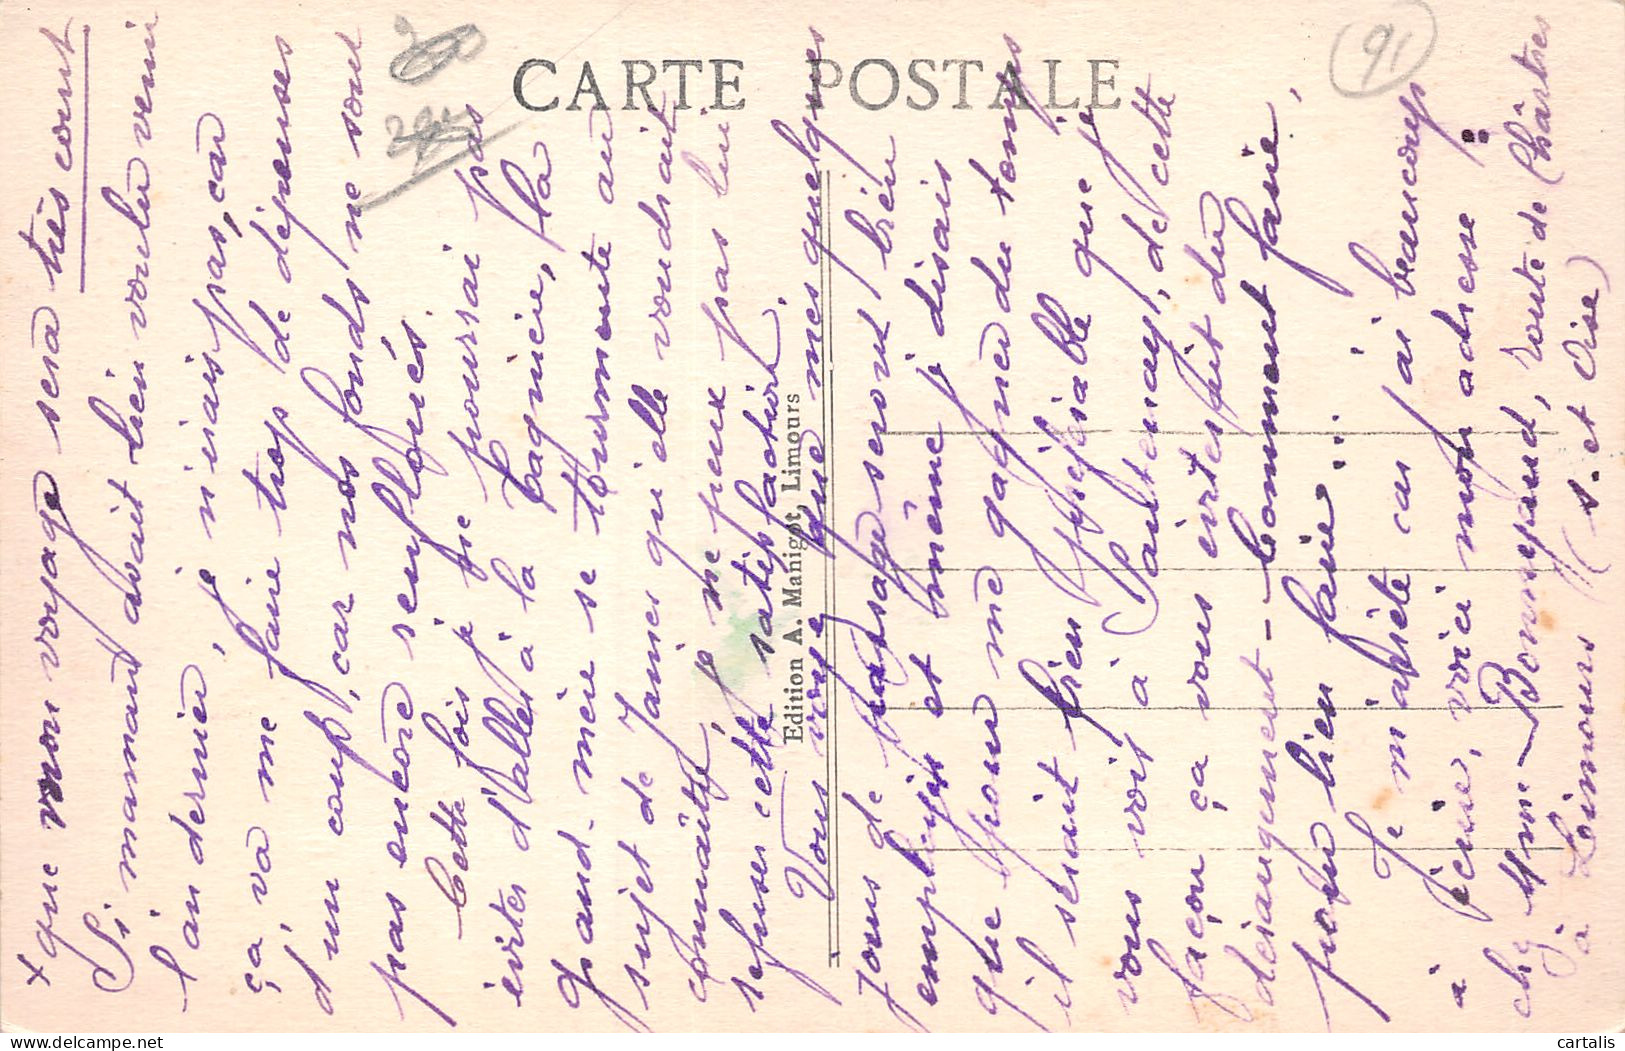 CARTE POSTALE
91
+ que mon voyage sera très court
Si maman avait bien voulu venir
l'an dernier, je n'irais pas, car
ça va me faire trop de dépenses
d'un coup, car nos fonds ne sont
pas encore renfloués.
Cette fois je ne pourrai pas
éviter d'aller à la la
grand-mère se tourmente au
sujet de Janie qu'elle voudrait
connaître, je ne peux pas lui
refuser cette satisfaction.
Vous voyez que mes quelques
jours de passage seront bien
employés et même je disais
que pour me gagner du temps
il serait bien préférable que je
vous voie à Partenay, de cette
façon ça vous évitait du
dérangement - Comment faire,
pour bien faire...
Je m'arrête car j'ai beaucoup
à écrire, voici mon adresse :
chez Mme Bonneyaud, route de Chârtres
à Limours (S. et Oise)
Edition A. Manigot, Limours
cartalis
delcampe.net